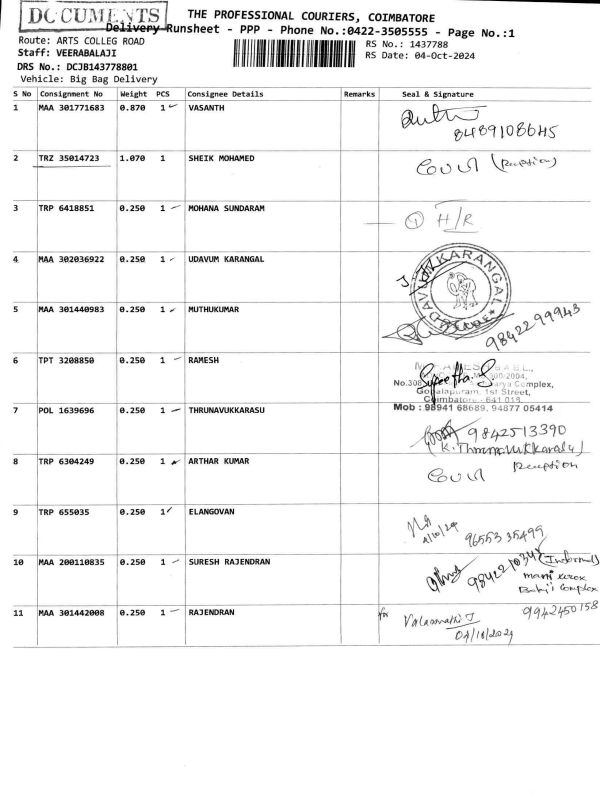 DOCUMENTS
THE PROFESSIONAL COURIERS, COIMBATORE
Delivery Runsheet - PPP - Phone No.:0422-3505555 - Page No.:1
Route: ARTS COLLEG ROAD
RS No.: 1437788
Staff: VEERABALAJI
RS Date: 04-Oct-2024
DRS No.: DCJB143778801
Vehicle: Big Bag Delivery
S No Consignment No Weight PCS Consignee Details Remarks Seal & Signature
1 MAA 301771683 0.870 1 VASANTH
8489108645
2 TRZ 35014723 1.070 1 SHEIK MOHAMED
3 TRP 6418851 0.250 1 MOHANA SUNDARAM
1 H/R
4 MAA 302036922 0.250 1 UDAVUM KARANGAL
UDAVUM KARANGAL
5 MAA 301440983 0.250 1 MUTHUKUMAR
9842299943
6 TPT 3208850 0.250 1 RAMESH
No.308 Complex,
Gopalapuram, 1st Street,
Coimbatore - 641 018.
Mob : 98941 68689, 94877 05414
7 POL 1639696 0.250 1 THRUNAVUKKARASU
9842513390
8 TRP 6304249 0.250 1 ARTHAR KUMAR
Reception
9 TRP 655035 0.250 1 ELANGOVAN
4/10/24 9655335499
10 MAA 200110835 0.250 1 SURESH RAJENDRAN
Complex
11 MAA 301442008 0.250 1 RAJENDRAN
for
9942450158
04/10/2024